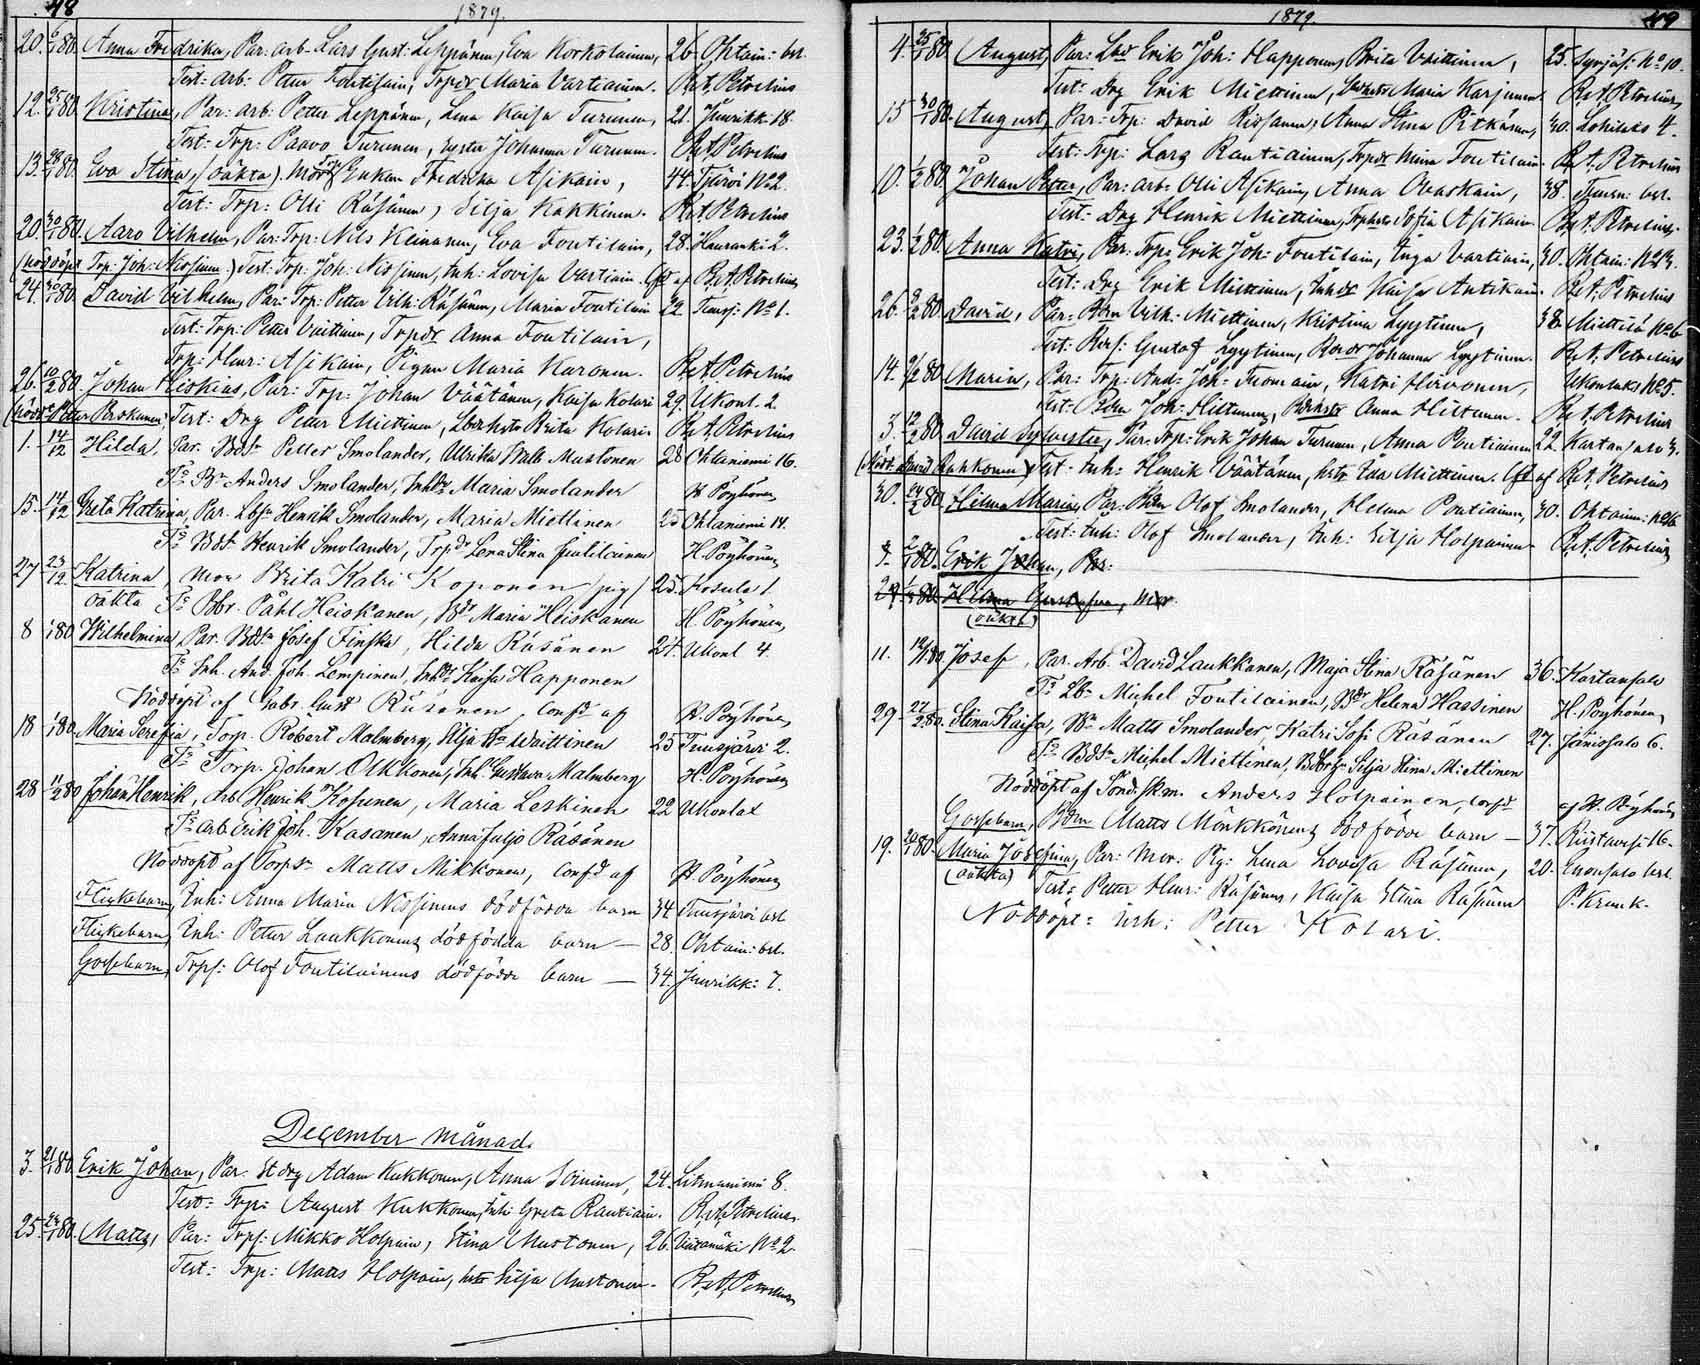 48
1879.
20. 6/1 80. Anna Fredrika, Par: arb. Lars Gust: Leppänen, Eva Korkolainen, 26. Ohtain: bel.
Test: Arb: Petter Fontilain, Trpdr Maria Vartiainen. R. A. Petrelius
12. 25/1 80. Kristina, Par: arb: Petter Leppänen, Lena Kaisa Turunen, 21. Juurikk. 18.
Test: Trp: Paavo Turunen, Johanna Turunen. R. A. Petrelius
13. 28/1 80. Eva Stina, (oäkta). Mor: Enkan Fredrika Asikain, 44. Tjärvi No 2.
Test: Trp: Olli Räsänen, Silja Kakkinen. R. A. Petrelius
20. 30/1 80. Aaro Vilhelm, Par: Trp: Nils Keinanen, Eva Fontilain, 28. 2.
(nöddöpt Trp: Joh: Nissinen.) Test: Trp: Joh: Nissinen, Inh: Lovisa Vartiain. Cft af R. A. Petrelius
24. 30/1 80. David Vilhelm, Par: Trp: Petter Vilh: Räsänen, Maria Fontilain 22. Tuusj: No 1.
Test: Trp: Petter Väittinen, Trpdr Anna Fontilain,
Trp: Henr: Asikain, Pigan Maria Karonen. R. A. Petrelius
26. 10/2 80. Johan Heskias, Par: Trp: Johan Väätänen, Kaisa Kolari 29. Ukont. 2.
(nödd: Petter Korkanen) Test: Drg Petter Miettinen, Brita Kolari. R. A. Petrelius
1. 14/12 Hilda, Par. Bdsn Petter Smolander, Ulrika Walb. Mustonen 28 Ohtaniemi 16.
Ts Bn Anders Smolander, Inhdr Maria Smolander H. Pöyhönen
15. 14/12 Greta Katrina, Par. Lbsn Henrik Smolander, Maria Miettinen 25 Ohtaniemi 14.
Ts Bdsn Henrik Smolander, Trpdr Lena Stina H. Pöyhönen
27 23/12 Katrina, Mor Brita Katri Koponen (pig) 25. Kosula 1.
oäkta Ts Bbr. Påhl Heiskanen, Bdr Maria Heiskanen H. Pöyhönen,
8 1/1 80 Wilhelmina Par. Bdsn Josef Finska, Hilda Räsänen 24. Ukont 4.
Ts Inh. And. Joh. Lempinen, Inhdr Kaisa Happonen
Nöddöpt af Gabr. Gust Räsänen, Confd af H. Pöyhönen,
18 1/1 80 Maria Serefia, Torp. Robert Malmberg, Silja Waittinen 25 Tuusjärvi 2.
Ts Torp. Johan Olkkonen, Inh. Gustava Malmberg H. Pöyhönen
28 11/2 80 Johan Henrik, Arb. Henrik Kosunen, Maria Leskinen 22 Ukonlax
Ts arb Erik Joh. Kasanen, Anna Räsänen
Nöddöpt af Torpsn Matts Mikkonen, Confd af H. Pöyhönen
Flickebarn, Inh: Anna Maria Nissinens dödfödda barn 34 Tuusjärvi bel.
Flickebarn, Inh: Petter Laukkonens dödfödda barn — 28. Ohtain: bel.
Gossebarn, Trps: Olof Fontilainens dödfödde barn — 34. Juurikk: 7.
December månad.
3. 21/1 80. Erik Johan, Par. Drg Adam Kukkonen, Anna Soininen, 24. Litmaniemi 8.
Test: Trp: August Kukkonen, Inh: Greta Rautiain. R. A. Petrelius.
25. 24/1 80. Matts, Par: Trp: Mikko Holpain, Stina Mustonen, 26. Viitamäki No 2.
Test: Trp: Matts Holpain, hustr Silja Mustonen. R. A. Petrelius
1879.
49
4. 25/1 80. August, Par: Lbd Erik Joh: Happonen, Brita Väittinen, 25. Syrjäs: No 10.
Test: Drg Erik Miettinen, Maria Karjunen. R. A. Petrelius
15 30/1 80. August, Par: Trp: David Rissanen, Anna Stina Pitkänen, 30. Lohilaks 4.
Test: Trp: Lars Rautiainen, Trpdr Mina Fontilain. R. A. Petrelius
10. 1/2 80. Johan Petter, Par: arb: Olli Asikain, Anna Ovaskain, 38. bel.
Test: Drg Henrik Miettinen, Trphstr Sofia Asikain. R. A. Petrelius.
23. 1/2 80. Anna Katri, Par: Trp: Erik Joh: Fontilain, Inga Vartiain, 30. Ohtain: No 13.
Test: Drg Erik Miettinen, Inhdr Kaisa Antikain. R. A. Petrelius
26. 9/2 80. David, Par: Bdn Vilh: Miettinen, Kristina Lyytinen, 38. Miettilä No 6.
Test: Gustaf Lyytinen, Bondr Johanna Lyytinen. R. A. Petrelius
14. 9/2 80. Maria, Par: Trp: And: Joh: Tuomain, Katri Hirvonen, Ukonlaks No 5.
Test: Bdn Joh: Hiltunen, Bdhstr Anna Hiltunen. R. A. Petrelius
3. 12/2 80. David Sylvester, Par: Trp: Erik Johan Turunen, Anna Pentiainen 22. Kartansalo 3.
(Nödd: David Ruhkonen) Test: Inh: Henrik Väätänen, hstr Ida Miettinen. Cft af R. A. Petrelius
30. 24/2 80. Helma Maria, Par: Bdn Olof Smolander, Helena Pentiainen, 30. Ohtain: No 16.
Test: Inh: Olof Smolander, Inh: Silja Holpainen R. A. Petrelius
9. 2/1 80. Erik Johan, Par:
29 1/1 80. Helma Gustafva, Mor.
(oäkta)
11. 12/1 80 Josef, Par. Arb. David Laukkanen, Maja Stina Räsänen 36. Kartansalo
Ts Lbn Michel Fontilainen, Bdr Helena Hassinen H. Pöyhönen,
29 22/2 80. Stina Kaisa, Bn Matts Smolander, Katri Sofi Räsänen 27. Jäniosalo 6.
Ts Bdsn Michel Miettinen, Silja Stina Miettinen
Nöddöpt af Sönd. skm. Anders Holpainen, Confd af H. Pöyhönen
Gossebarn, Bdn Matts Mönkkönens dödfödde barn — 37. Riistavesi 16.
19. 20/1 80. Maria Josefina, Par: Mor: Pig: Lena Lovisa Räsänen, 20. Enonsalo bel.
(oäkta) Test: Petter Henr: Räsänen, Kaisa Stina Räsänen P. Krank.
Nöddöpt: Inh: Petter Kolari.